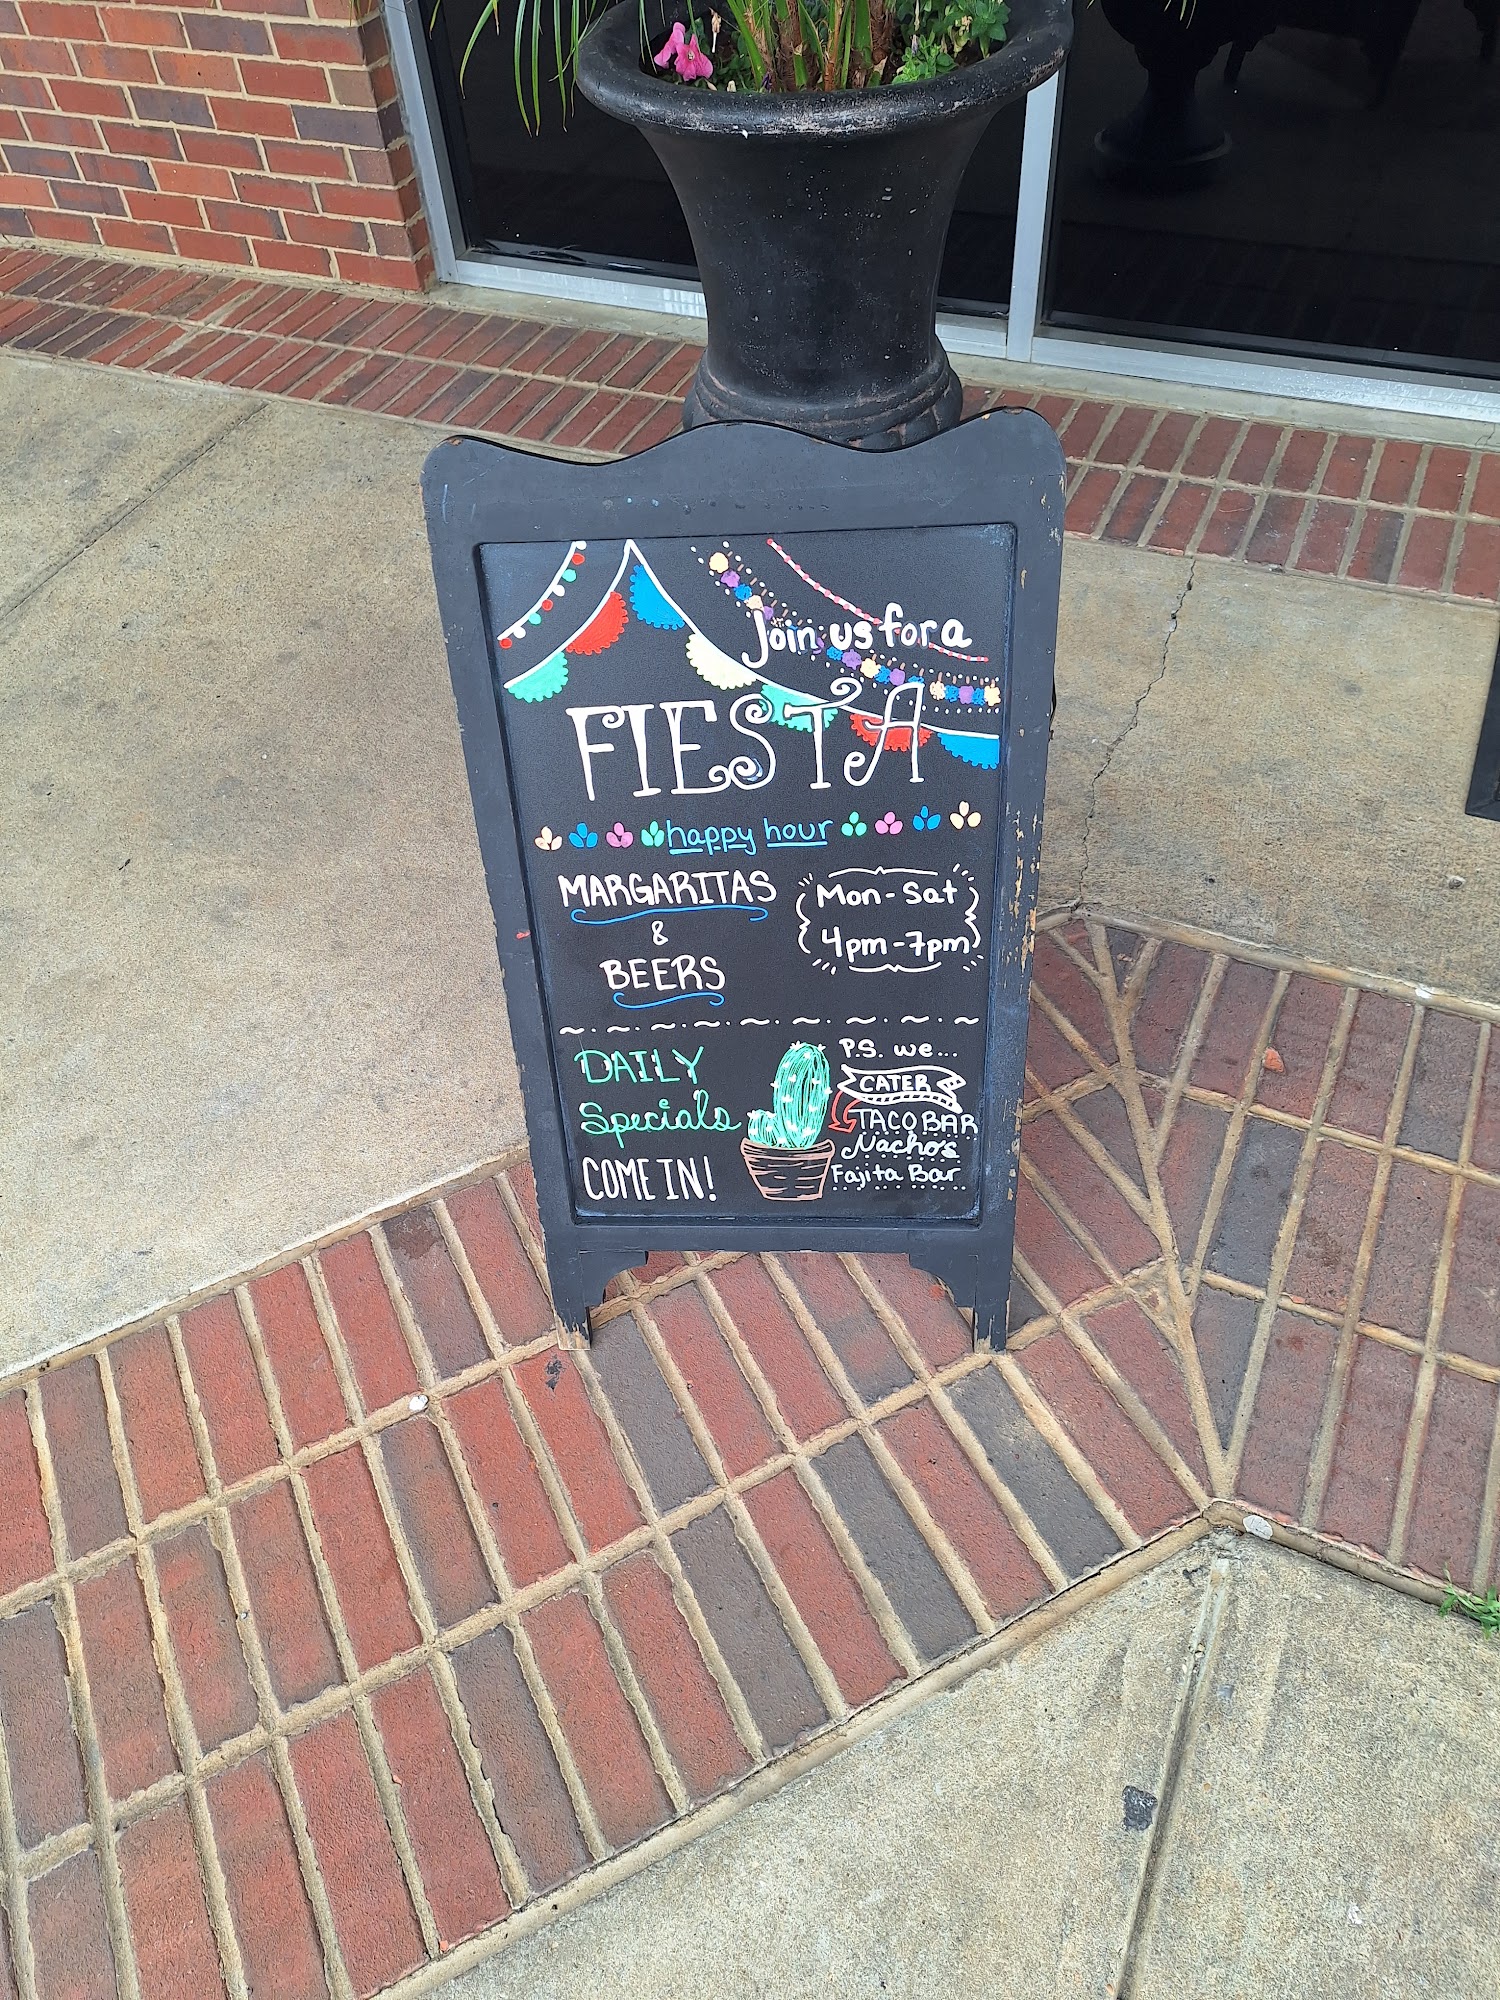 Join us for a
FIESTA
happy hour
MARGARITAS
&
BEERS
Mon-Sat
4pm-7pm
DAILY
Specials
COME IN!
P.S. we...
CATER
TACO BAR
Nachos
Fajita Bar